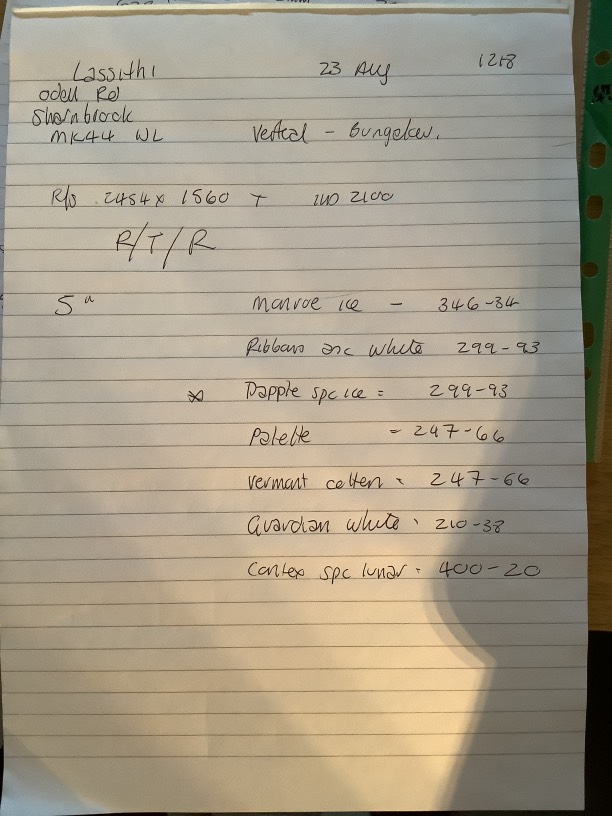 Lassithi 23 Aug 1218
Odell Rd
Sharnbrook
MK44 WL Vertical - Bungalow.
R/S 2454 x 1560 T 2100
R/T/R
5" Monroe ice - 346-34
Ribbons asc white 299-93
Dapple spc ice = 299-93
Palette = 247-66
Vermont cotten = 247-66
Guardian white = 210-38
Contex spc lunar = 400-20